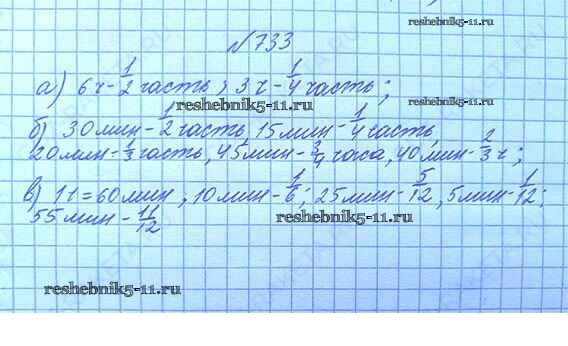 reshebnik5-11.ru
№733
а) 6ч-1/2 часть; 3ч-1/4 часть;
reshebnik5-11.ru
б) 30мин-1/2 часть, 15мин-1/4 часть,
20мин-1/3 часть, 45мин-3/4 часа, 40мин-2/3 ч;
в) 1ч=60мин, 10мин-1/6; 25мин-5/12, 5мин-1/12;
55мин-11/12
reshebnik5-11.ru
reshebnik5-11.ru